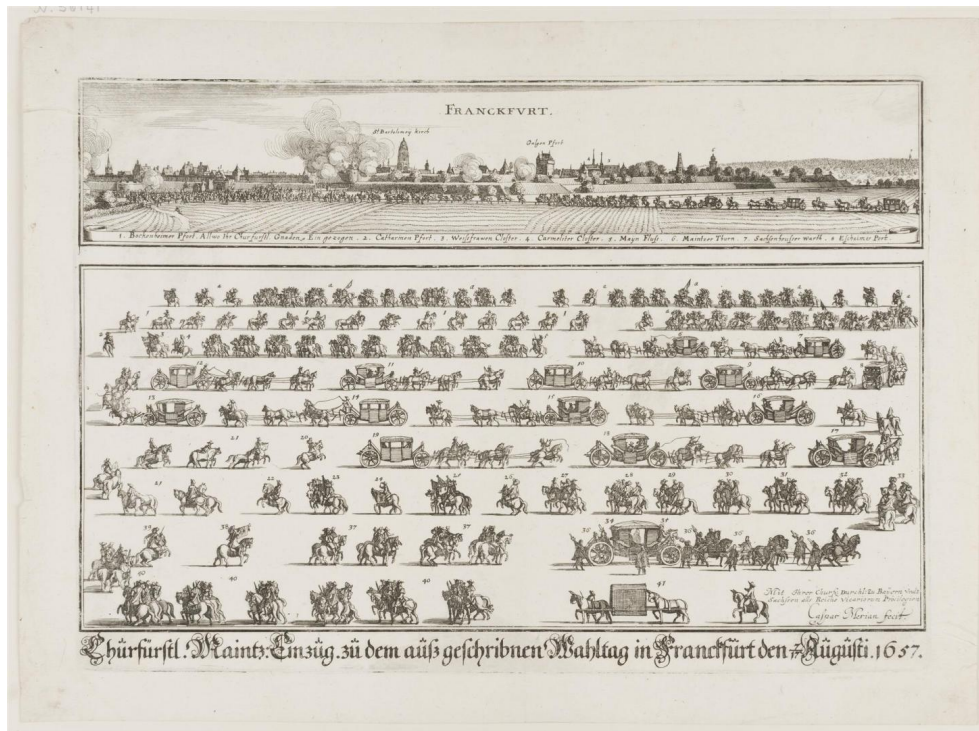 FRANCKFVRT.
St Bartolomej kirch
Galgen Pfort
1. Bockenheimer Pfort. Allwo Ihr Churfürstl. Gnaden Ein gezogen. 2. Catharinen Pfort. 3. Weissfrawen Closter. 4. Carmeliter Closter. 5. Mayn Fluss. 6. Maintzer Thurn. 7. Sachsenheuser Warth. 8 Escheimer Port.
12 11 10 9
15 14 16
21 20 19 18 17
22 23 26 27 28 29 30 31 32 33
39 38 37 37 34
40 40 40 41
Mit Ihrer Churf. Durchl. Zu Beyern Undt
Sachsen als Reichs Vicariorum Privilegien
Caspar Merian fecit.
Chürfürstl. Maintz. Einzüg. zü dem aüß geschribnen Wahltag in Franckfürt den Aügüsti. 1657.